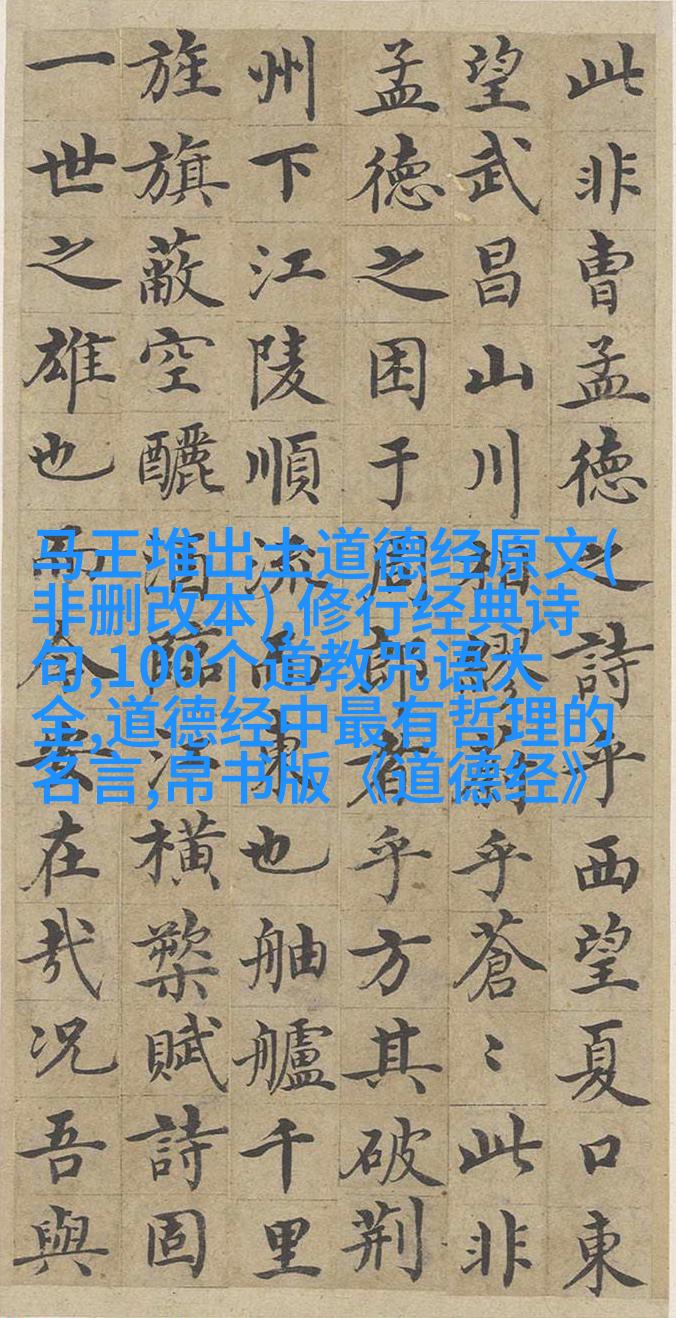 此非曹孟德之詩乎西望夏口東
望武昌山川相繆乎蒼〻此非
孟德之困于周郎者乎方其破荊
州下江陵順流而東也舳艫千里
旌旗蔽空釃酒臨江橫槊賦詩固
一世之雄也而今安在哉况吾與
马王堆出土道德经原文(
非删改本),修行经典诗
句,100个道教咒语大
全,道德经中最有哲理的
名言,帛书版《道德经》